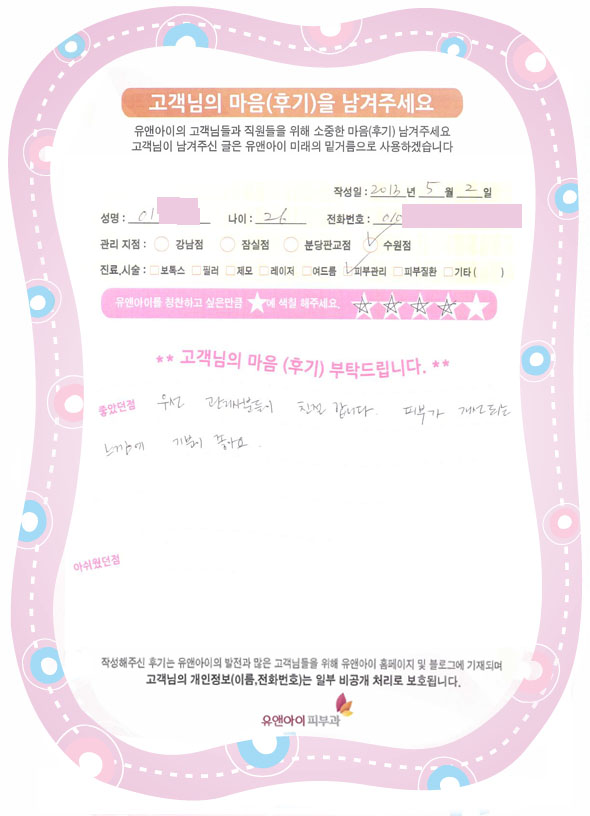 고객님의 마음(후기)을 남겨주세요
유앤아이의 고객님들과 직원들을 위해 소중한 마음(후기) 남겨주세요
고객님이 남겨주신 글은 유앤아이 미래의 밑거름으로 사용하겠습니다
작성일 : 2013 년 5 월 2 일
성명 : 이 나이 : 26 전화번호 : 010
관리 지점 : 강남점 잠실점 분당판교점 수원점
진료,시술 : 보톡스 필러 제모 레이저 여드름 피부관리 피부질환 기타( )
유앤아이를 칭찬하고 싶은만큼 ★에 색칠 해주세요
** 고객님의 마음 (후기) 부탁드립니다. **
좋았던점 우선 관리사분들이 친절 합니다. 피부가 개선되는
느낌에 기분이 좋아요.
아쉬웠던점
작성해주신 후기는 유앤아이의 발전과 많은 고객님들을 위해 유앤아이 홈페이지 및 블로그에 기재되며
고객님의 개인정보(이름,전화번호)는 일부 비공개 처리로 보호됩니다.
유앤아이피부과